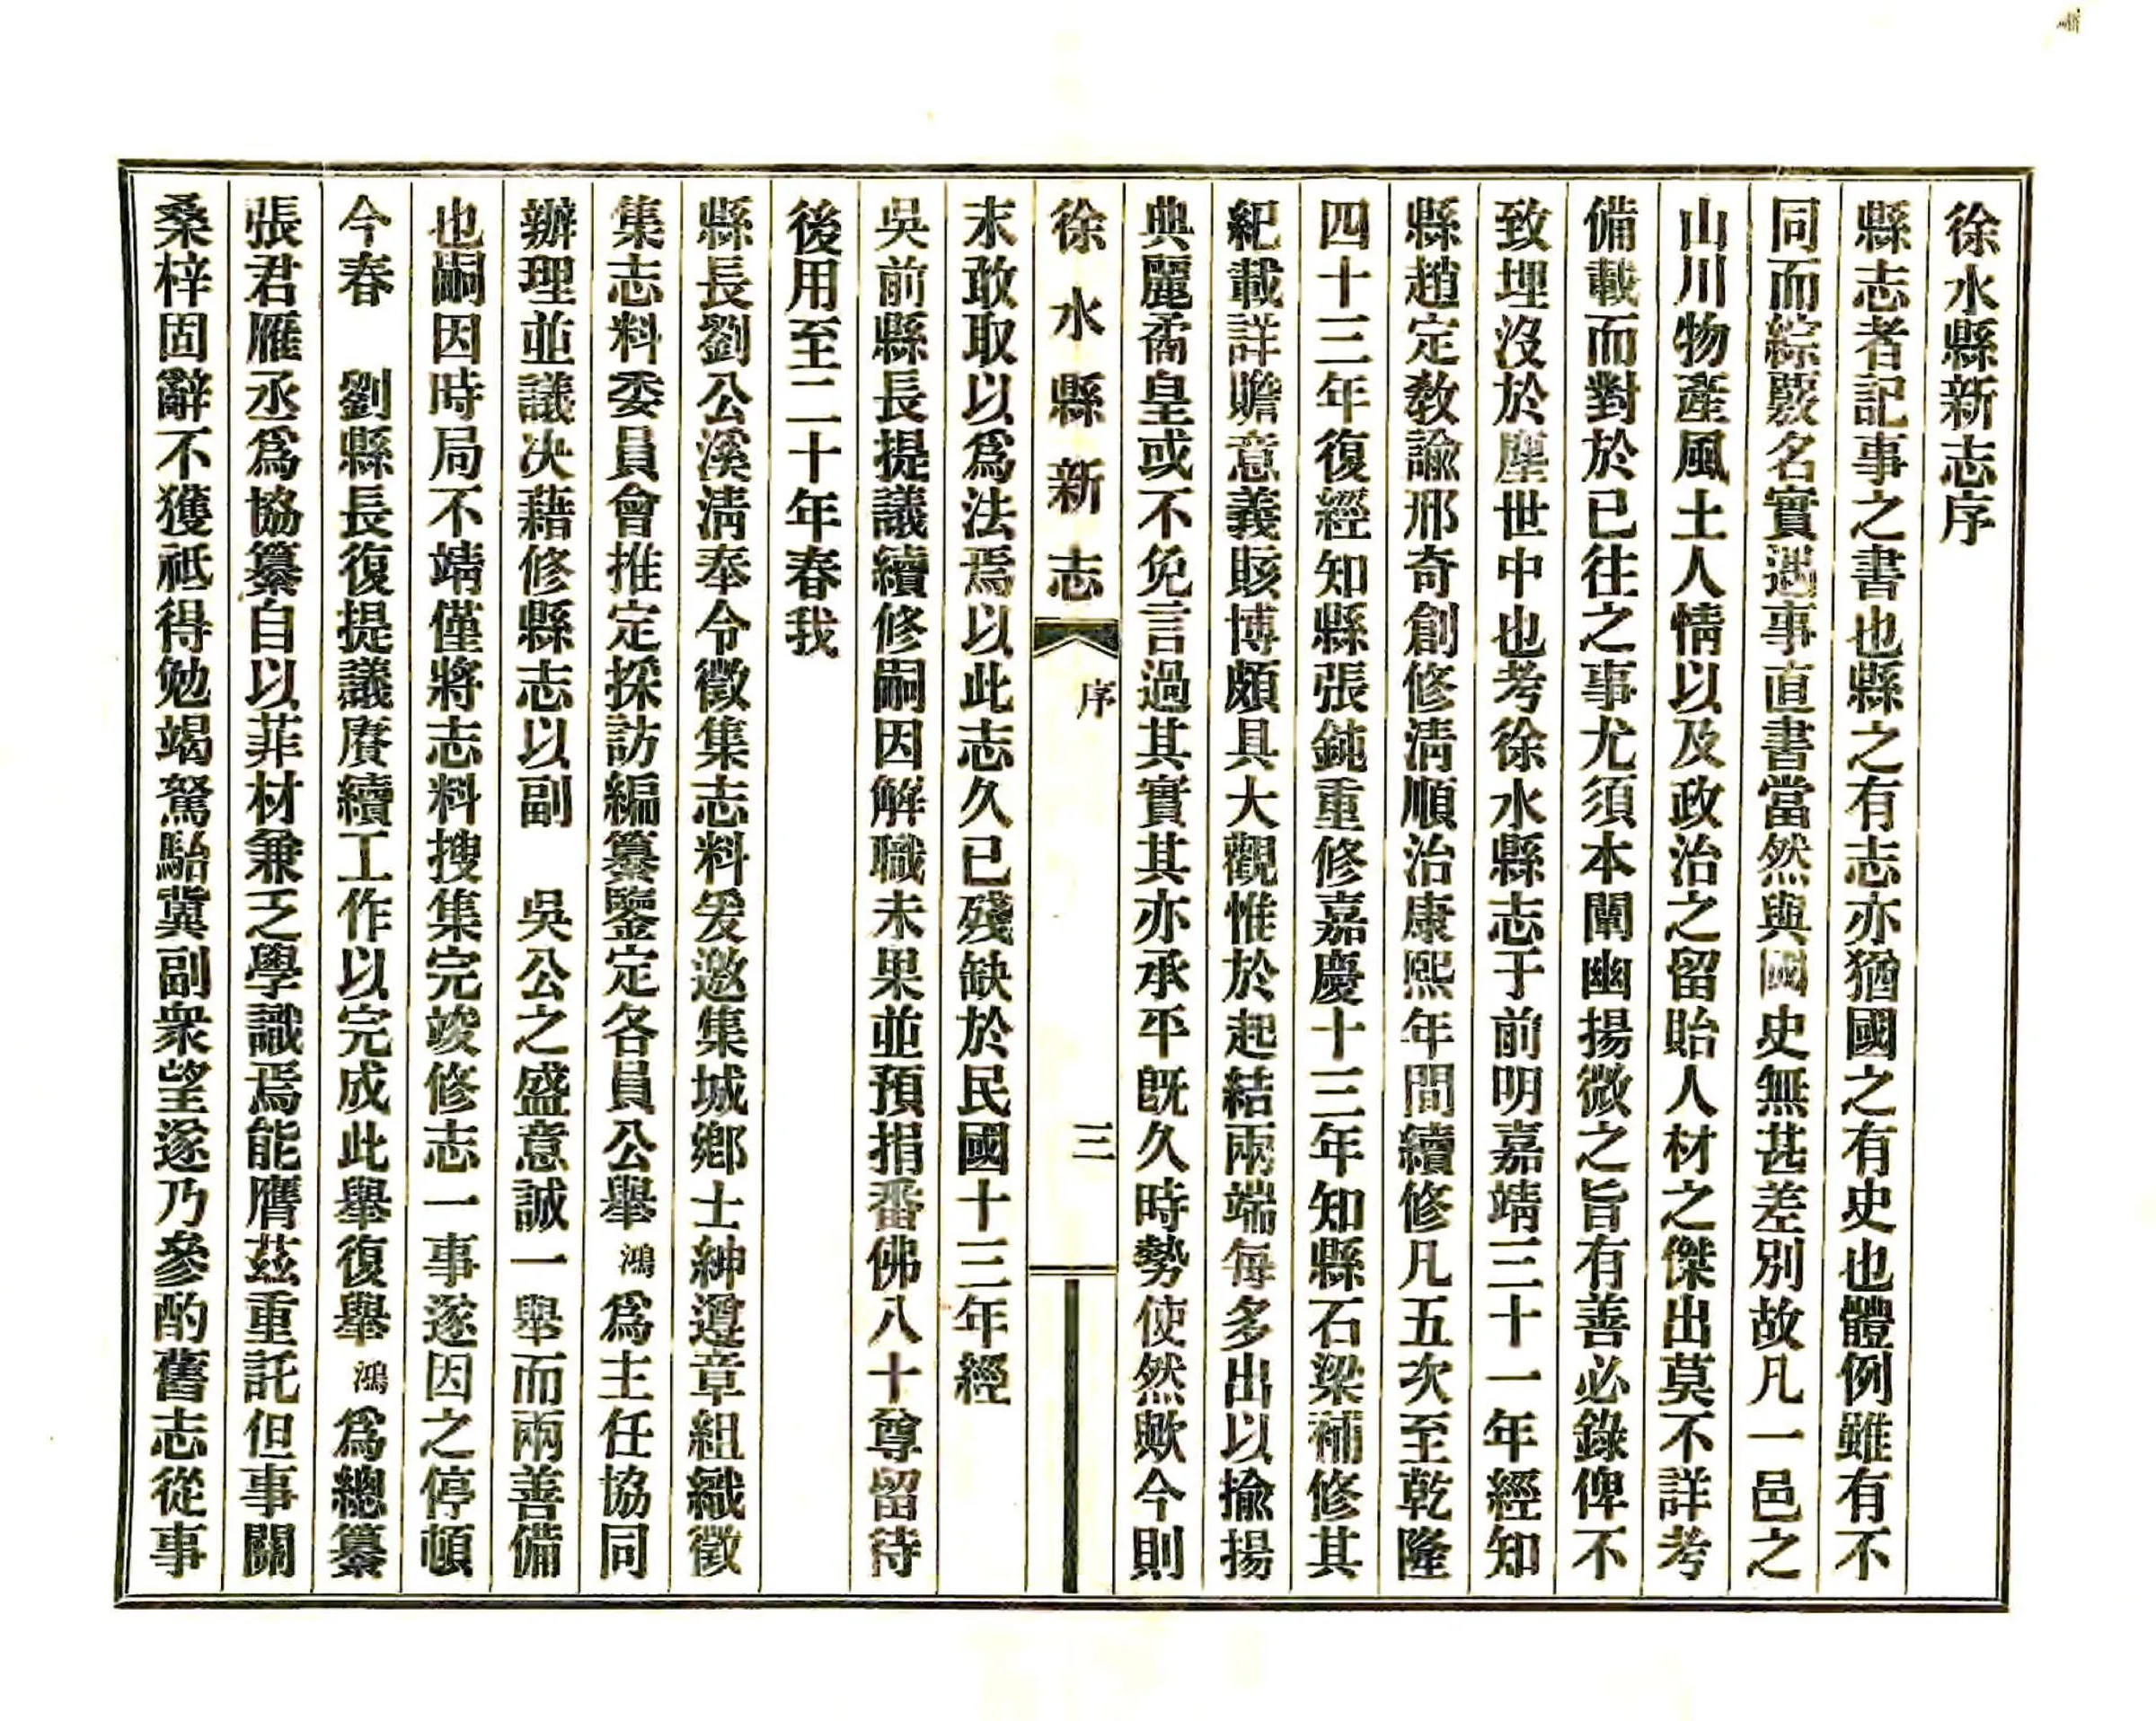 徐水縣新志序
縣志者記事之書也縣之有志亦猶國之有史也體例雖有不
同而綜覈名實遇事直書當然與國史無甚差別故凡一邑之
山川物產風土人情以及政治之留貽人材之傑出莫不詳考
備載而對於已往之事尤須本闡幽揚微之旨有善必錄俾不
致埋沒於塵世中也考徐水縣志于前明嘉靖三十一年經知
縣趙定教諭邢奇創修淸順治康熙年間續修凡五次至乾隆
四十三年復經知縣張鈍重修嘉慶十三年知縣石梁補修其
紀載詳贍意義賅博頗具大觀惟於起結兩端每多出以揄揚
典麗矞皇或不免言過其實其亦承平旣久時勢使然歟今則
徐水縣新志 序 三
末敢取以爲法焉以此志久已殘缺於民國十三年經
吳前縣長提議續修嗣因解職未果並預捐番佛八十尊留待
後用至二十年春我
縣長劉公溪淸奉令徵集志料爰邀集城鄉士紳遵章組織徵
集志料委員會推定採訪編纂鑒定各員公舉鴻爲主任協同
辦理並議决藉修縣志以副 吳公之盛意誠一舉而兩善備
也嗣因時局不靖僅將志料搜集完竣修志一事遂因之停頓
今春 劉縣長復提議賡續工作以完成此舉復舉鴻爲總纂
張君雁丞爲協纂自以菲材兼乏學識焉能膺茲重託但事關
桑梓固辭不獲祇得勉竭駑駘冀副衆望遂乃參酌舊志從事